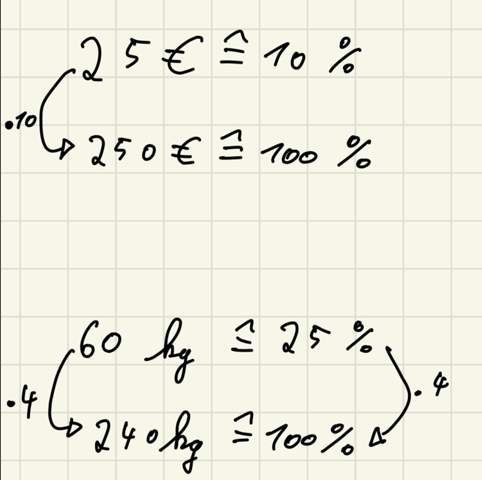 25 € ≙ 10 %
·10
250 € ≙ 100 %
60 kg ≙ 25 %
·4 ·4
240 kg ≙ 100 %